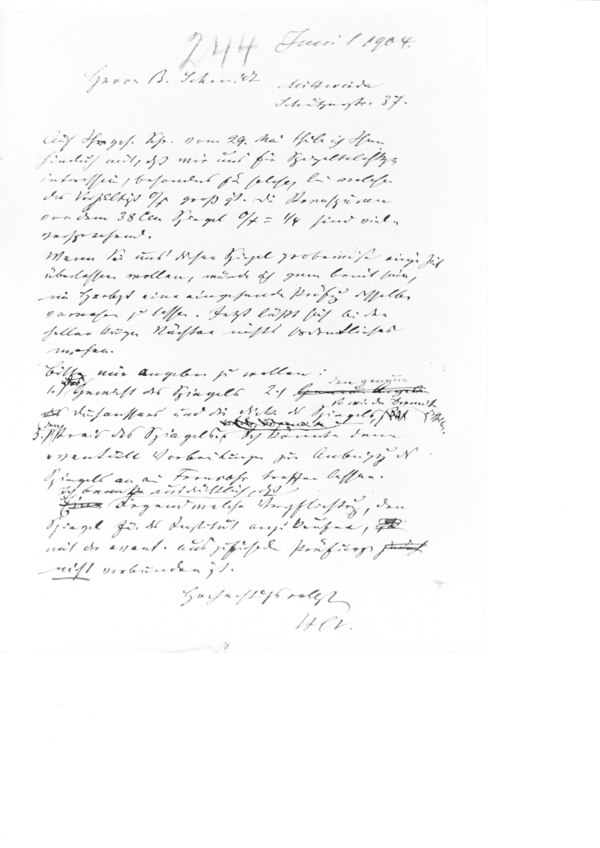 244
Juni 1 1904.
Herrn B. Schmidt
Mittweida
Schützenstr. 37.
Auf Ihr gesch. Schr. vom 29. Mai theile ich Ihnen
mit, daß wir uns für Spiegelteleskope
interessiren, besonders für solche, bei welchen
das Verhältniß O/F groß ist. Die
von dem 38 cm Spiegel O/F = 1/4 sind viel-
versprechend.
Wenn Sie uns diesen Spiegel probeweise einige Zeit
überlassen wollen, würde ich gern bereit sein,
im Herbst eine eingehende Prüfung desselben
vornehmen zu lassen. Jetzt läßt sich bei den
hellen Nächten nichts ordentliches
machen.
Bitte mir angeben zu wollen:
1.) Gewicht des Spiegels 2.) den genauen
sowie die Brennweite
Durchmesser und die Dicke des Spiegels,
3.) Preis des Spiegels. Ich könnte dann
eventuelle Vorbereitungen zur Anbringung des
Spiegels an ein Fernrohr treffen lassen.
Ich bemerke ausdrücklich, daß
irgend welche Verpflichtung, den
Spiegel für das Institut anzukaufen,
mit der event. Prüfung
nicht verbunden ist.
Hochachtungsvollst